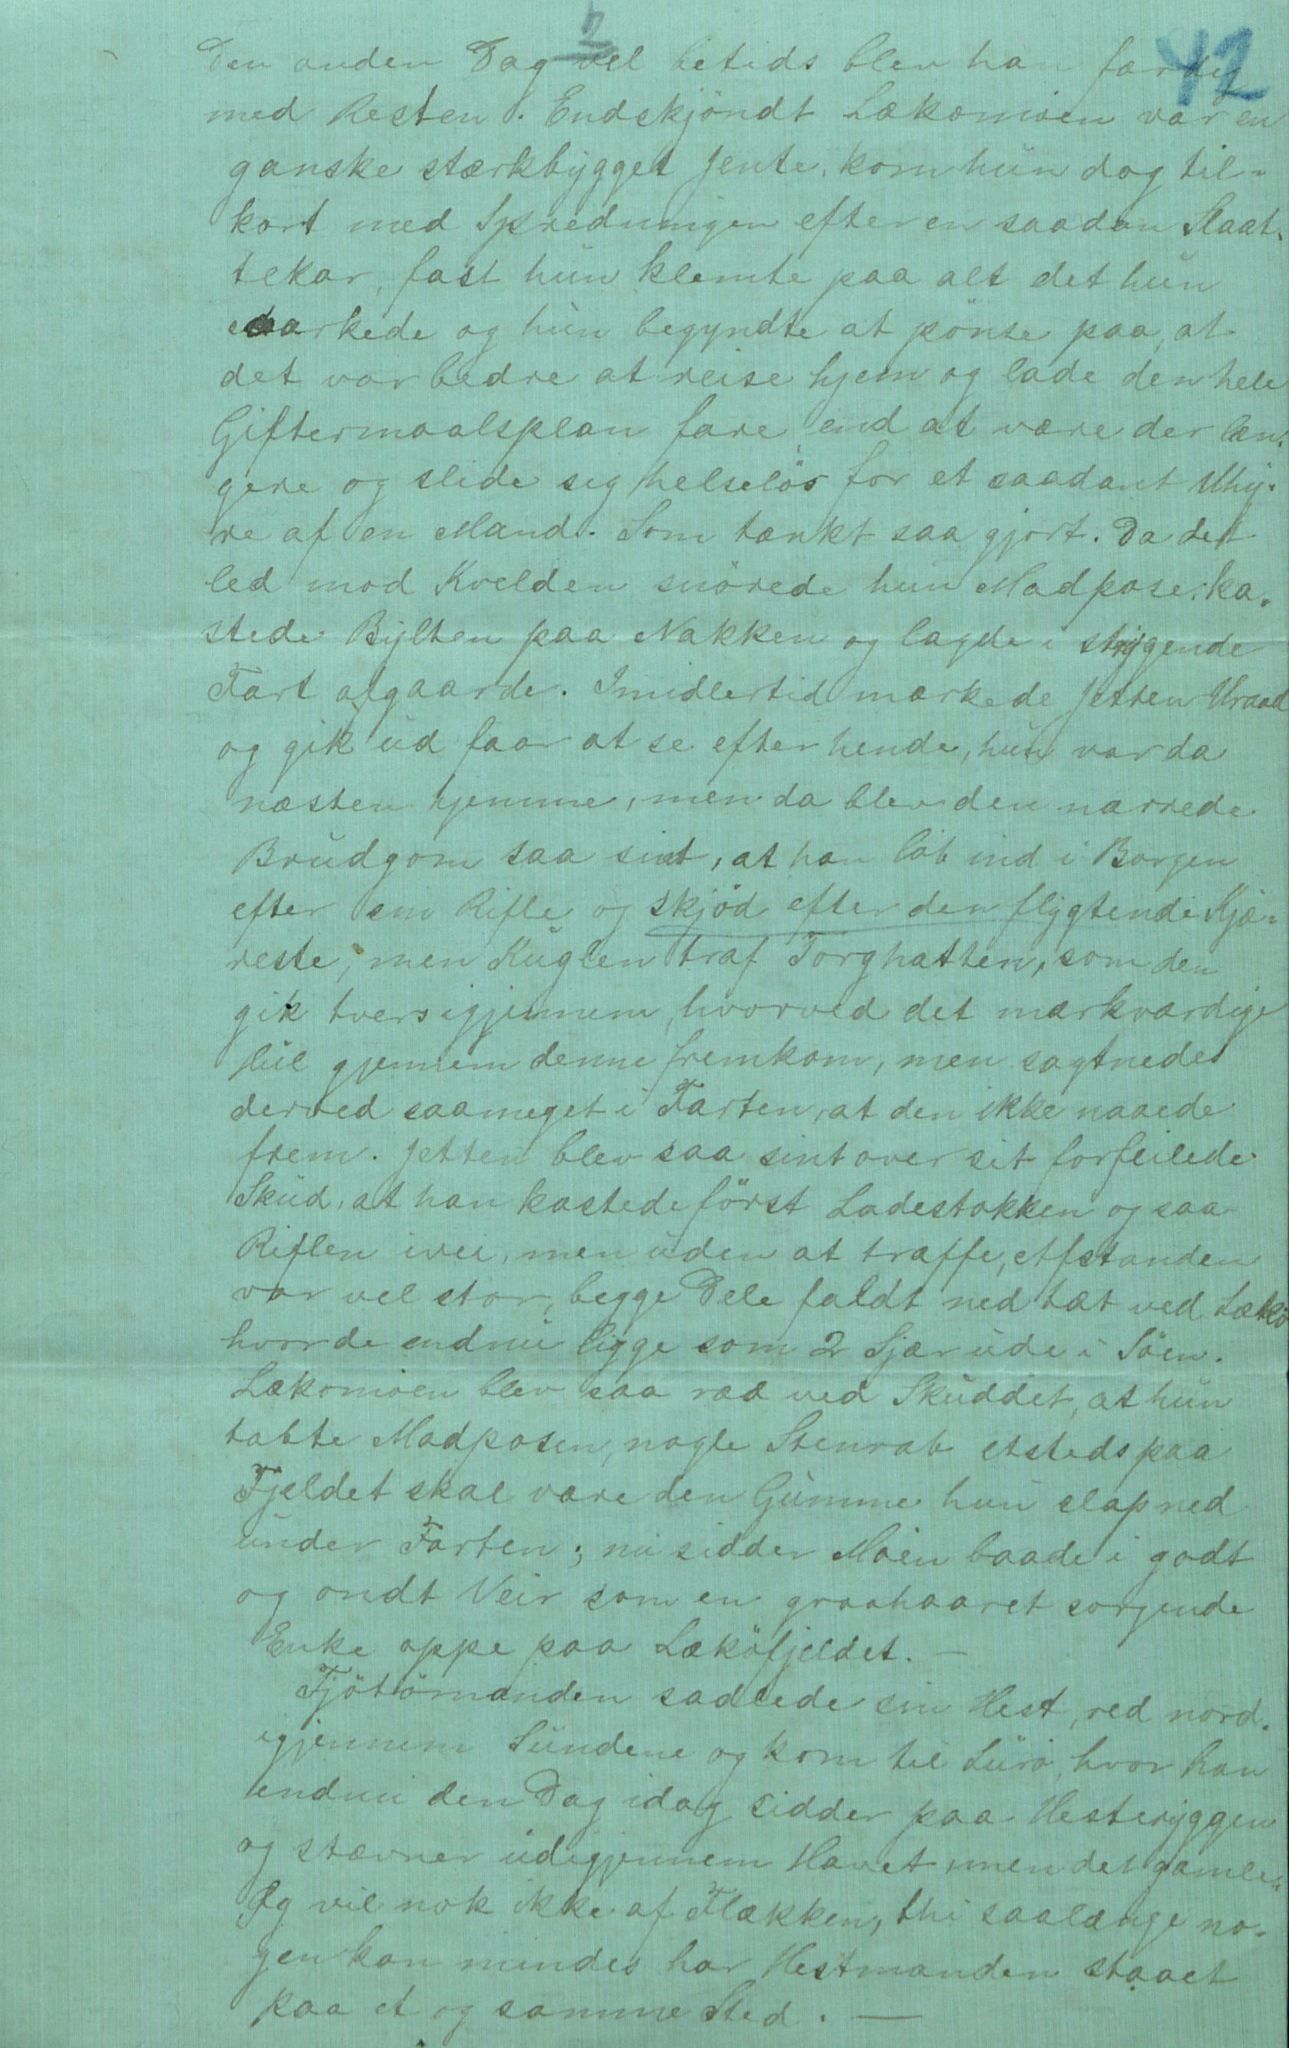 7
42
Den anden Dag vel betids blev han færdig
med Resten. Endskjöndt Lækomöen var en
ganske stærkbygget Jente, kom hun dog til-
kort med Spredningen efter en saadan Slaat-
tekar, fast hun klemte paa alt det hun
orkede og hun begyndte at pönse paa, at
det var bedre at reise hjem og lade den hele
Giftermaalsplan fare, end at være der læn-
gere og slide sig helselös for et saadant Uhy-
re af en Mand. Som tænkt saa gjort. Da det
led mod Kvelden snörede hun Madpose, ka-
stede Bylten paa Nakken og lagde i strygende
Fart afgaarde. Imidlertid mærkede Jetten Uraad
og gik ud for at se efter hende, hun var da
næsten hjemme, men da blev den narrede
Brudgom saa sint, at han löb ind i Borgen
efter sin Rifle og skjöd efter den flygtende Kjæ-
reste, men Kuglen traf Torghatten, som den
gik tvers igjennem, hvorved det mærkværdige
Hul gjennem denne fremkom, men sagtnedes
derved saameget i Farten, at den ikke naaede
frem. Jetten blev saa sint over sit forfeilede
Skud, at han kastede först Ladestokken og saa
Riflen ivei, men uden at træffe, Afstanden
var vel stor, begge Dele faldt ned tæt ved Lækö
hvor de endnu ligge som 2 Skjær ude i Söen.
Lækomöen blev saa ræd ved Skuddet, at hun
tabte Madposen, nogle Stenrab etsteds paa
Fjeldet skal være den Gumme hun slap ned
under Farten; nu sidder Möen baade i godt
og ondt Veir som en graahaaret sorgende
Enke oppe paa Læköfjeldet. —
Tjötömanden sadlede sin Hest, red nord-
igjennem Sundene og kom til Lurö, hvor han
endnu den Dag idag sidder paa Hesteryggen
og stævner udigjennem Havet, men det gamle
Øg vil nok ikke af Flækken, thi saalænge no-
gen kan mindes har Hestmanden staaet
paa et og samme Sted. —